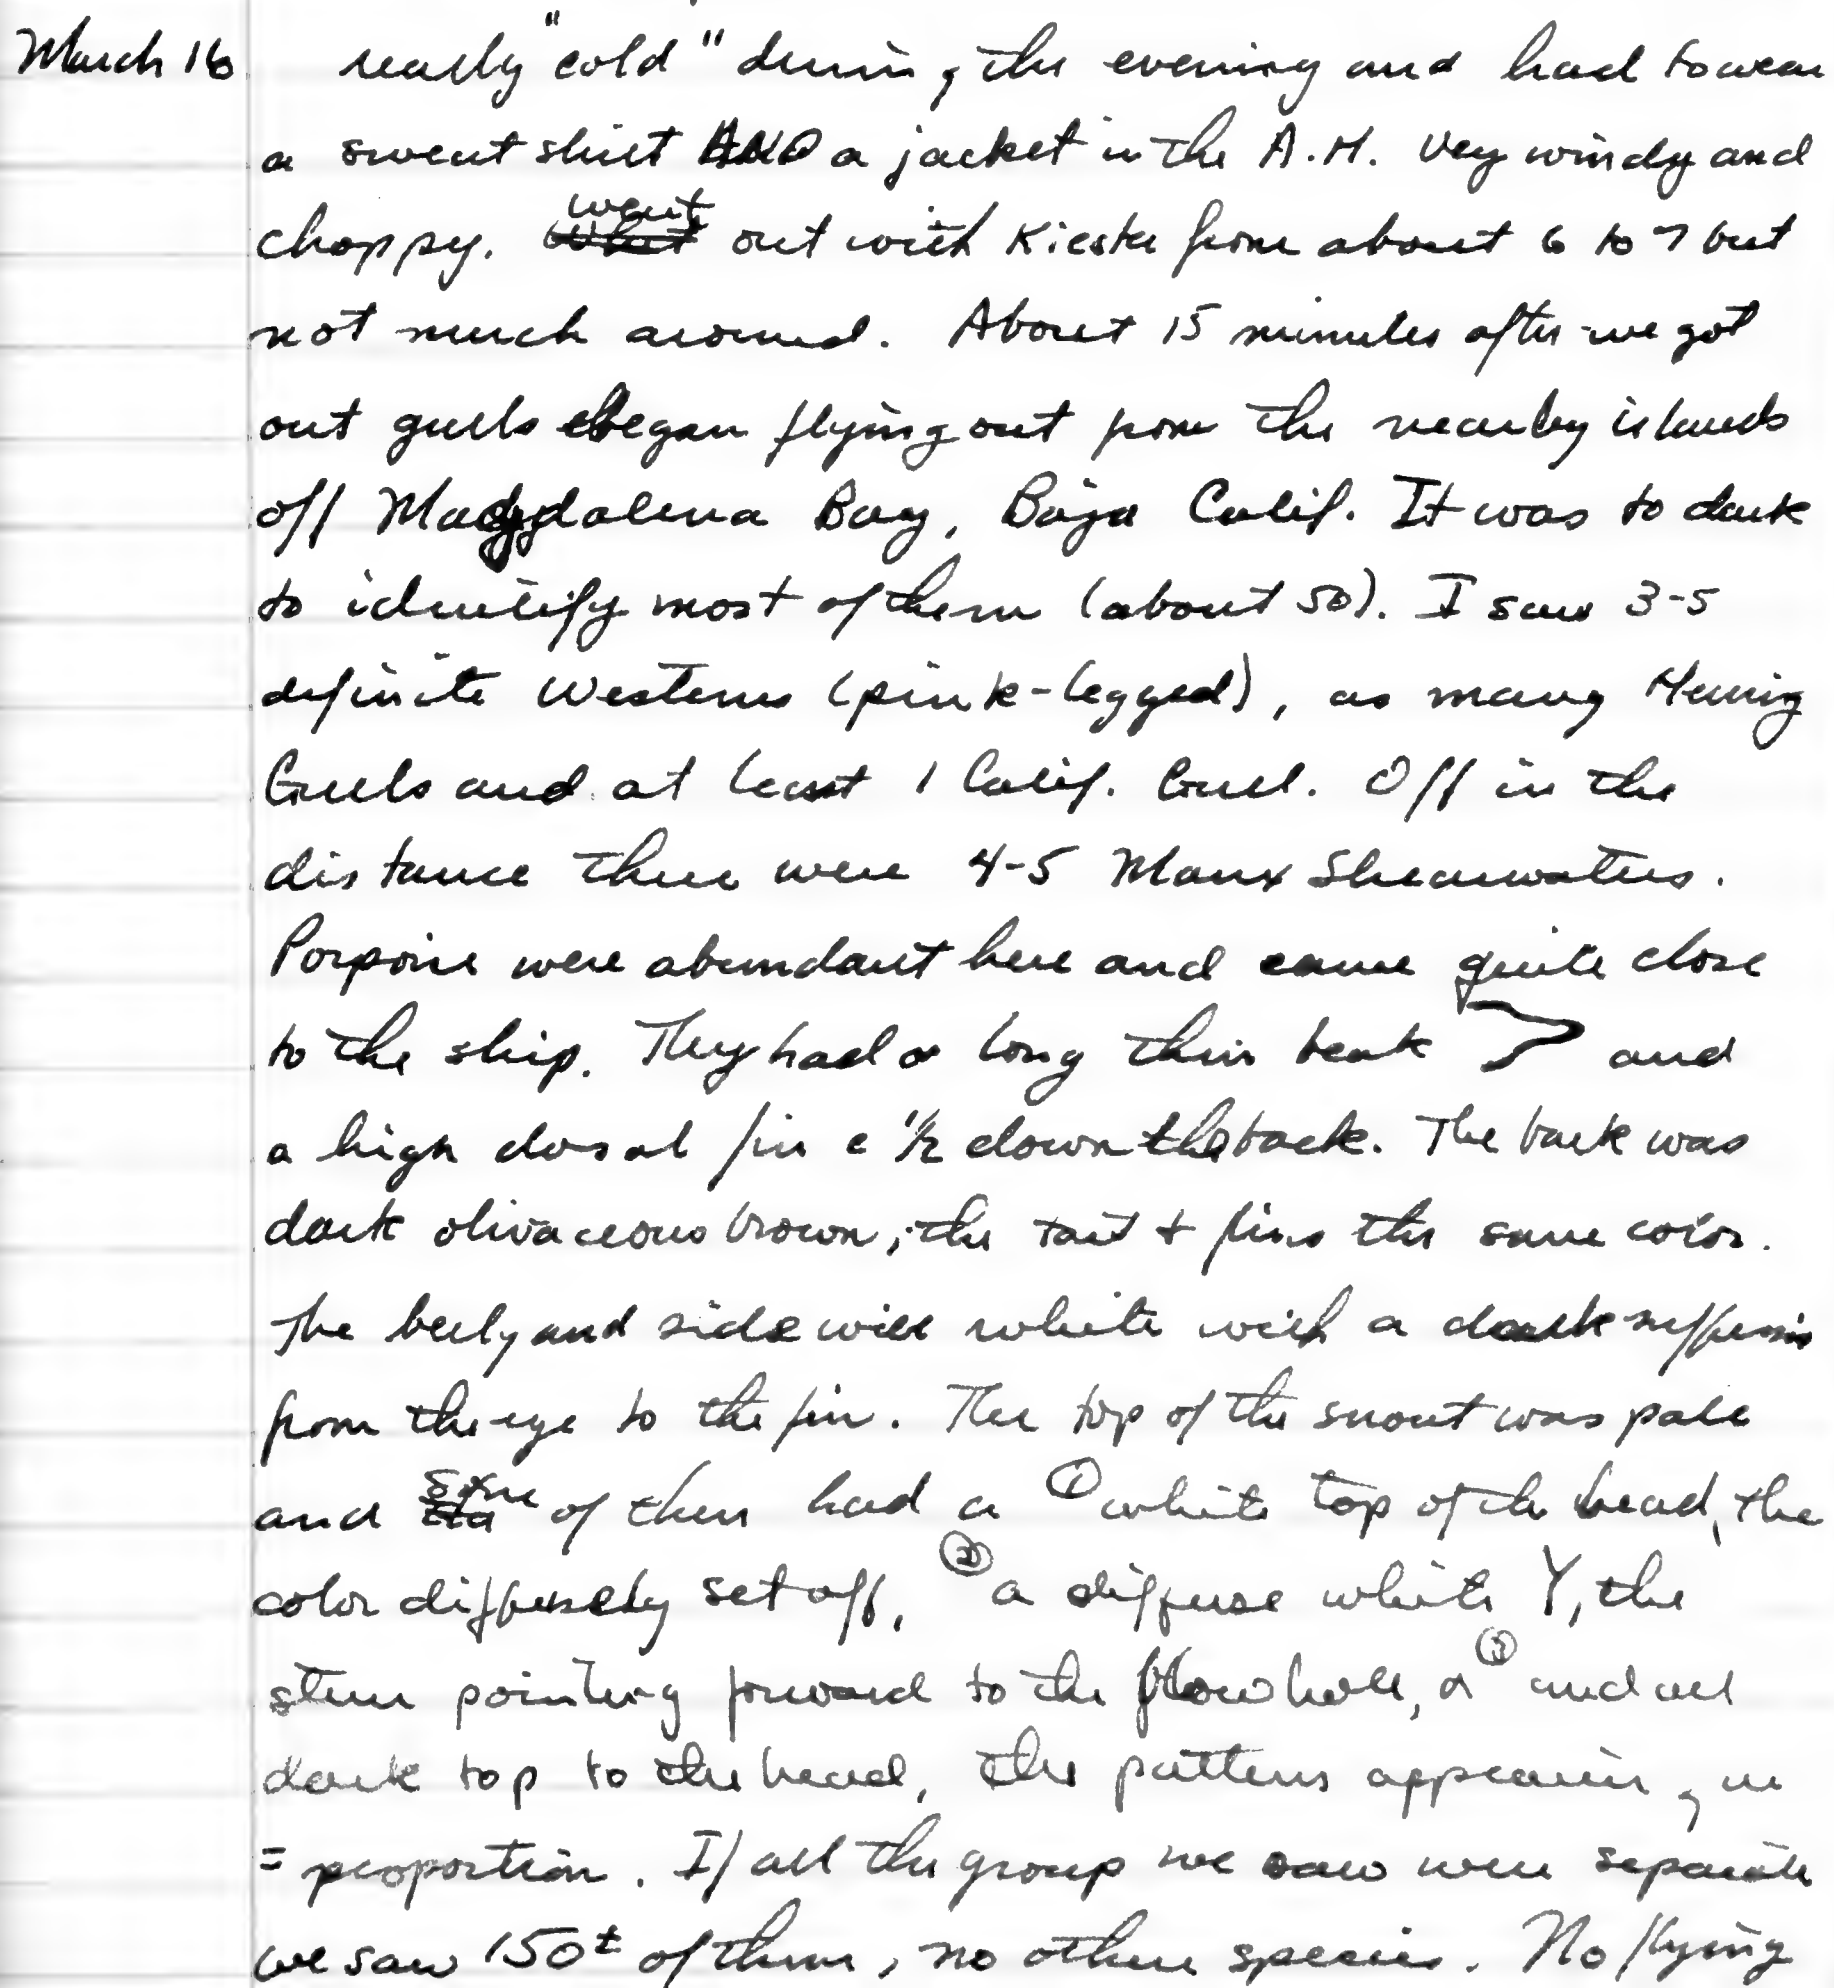 March 16 really "cold" during the evening and had to wear
a sweat shirt AND a jacket in the A.M. Very windy and
choppy. went out with Kiester from about 6 to 7 but
not much around. About 15 minutes after we got
out gulls began flying out from the nearby islands
off Magdalena Bay, Baja Calif. It was to dark
to identify most of them (about 50). I saw 3-5
definite Westerns (pink-legged), as many Herring
Gulls and at least 1 Calif. Gull. Off in the
distance there were 4-5 Manx Shearwaters.
Porpoise were abundant here and came quite close
to the ship. They had a long thin beak and
a high dorsal fin c 1/2 down the back. The back was
dark olivaceous brown, the tail + fins the same color.
The belly and side were white with a dark suffusion
from the eye to the fin. The top of the snout was pale
and some of them had a ① white top of the head, the
color diffusely set off, ② a diffuse white Y, the
stem pointing forward to the blow hole, or ③ and all
dark top to the head, the patterns appearing in
= proportion. If all the group we saw were separate
we saw 150± of them, no other species. No flying